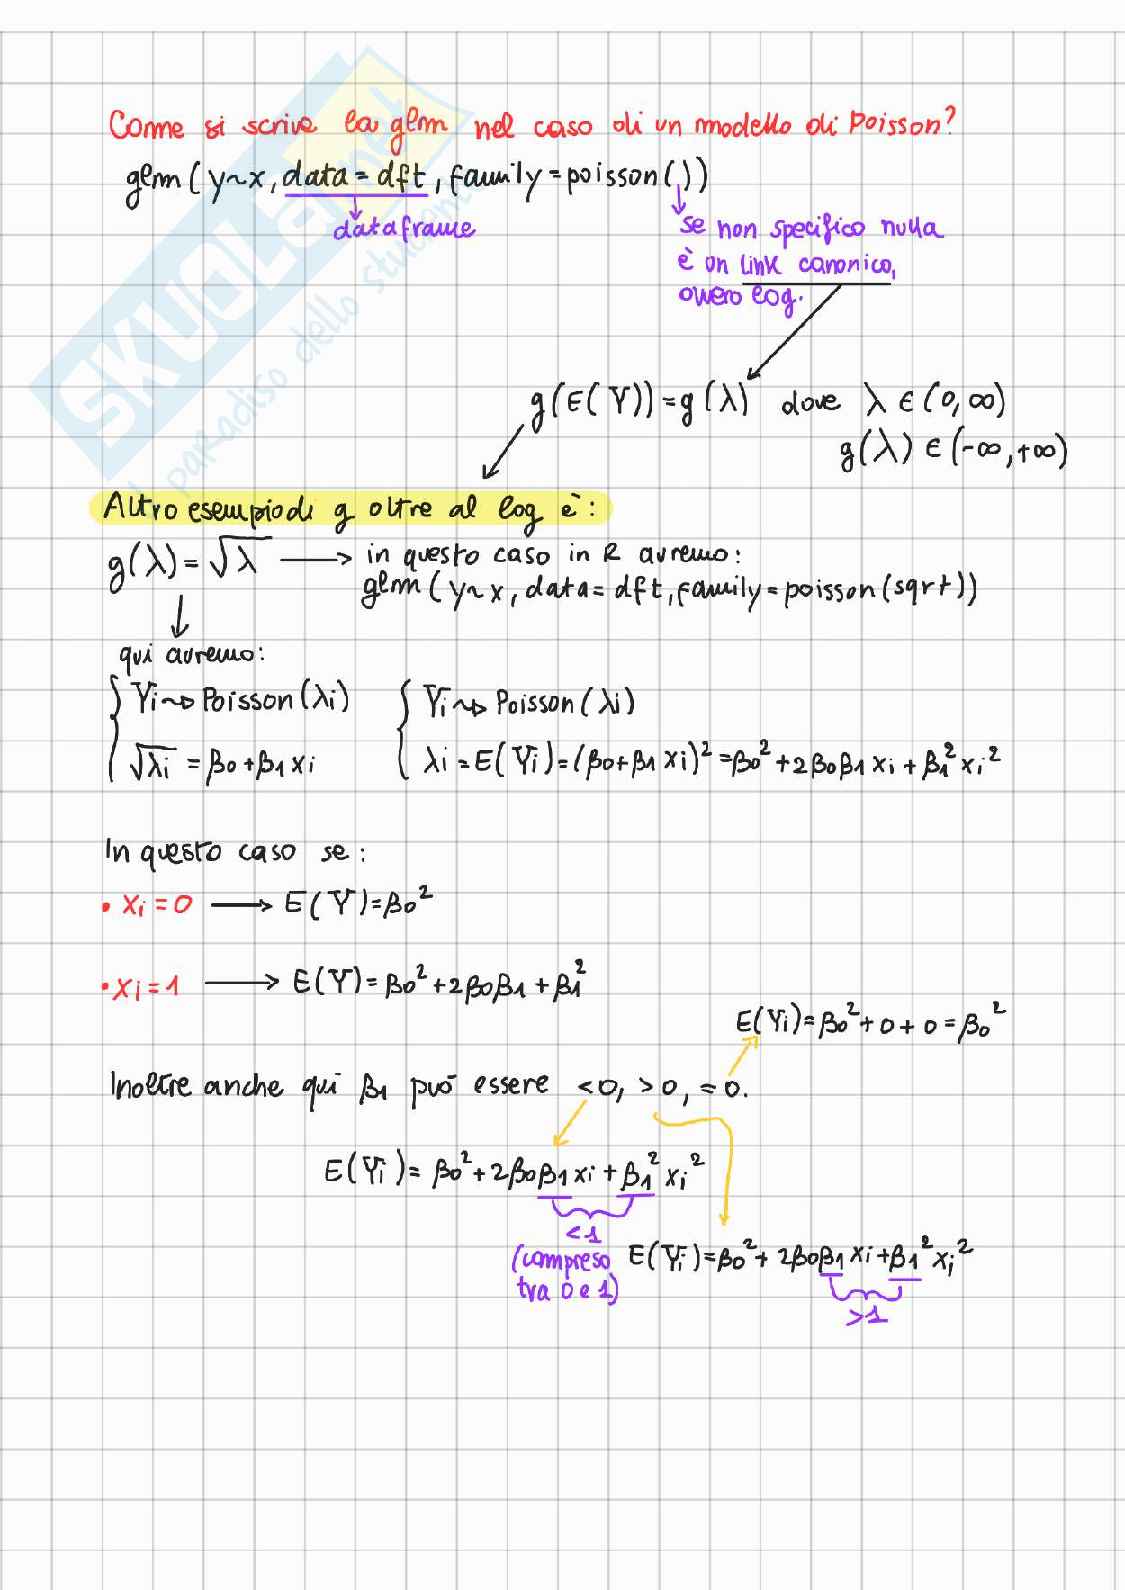 Come si scrive la glm nel caso di un modello di Poisson?
glm (y~x, data = dft, family = poisson())
dataframe
se non specifico nulla
è un link canonico,
ovvero log.
g(E(Y)) = g(λ) dove λ ∈ (0,∞)
g(λ) ∈ (-∞,+∞)
Altro esempio di g oltre al log è:
g(λ) = √λ → in questo caso in R avremo:
glm (y~x, data = dft, family = poisson (sqrt))
qui avremo:
{ Yi ~> Poisson (λi) { Yi ~> Poisson (λi)
√λi = β0 + β1 xi λi = E(Yi) = (β0+β1 xi)² = β0² + 2β0β1 xi + β1² xi²
In questo caso se:
• xi = 0 → E(Y) = β0²
• xi = 1 → E(Y) = β0² + 2β0β1 + β1²
E(Yi) = β0² + 0 + 0 = β0²
Inoltre anche qui β1 può essere <0, >0, = 0.
E(Yi) = β0² + 2β0β1 xi + β1² xi²
<1
(compreso
tra 0 e 1)
E(Yi) = β0² + 2β0β1 xi + β1² xi²
>1
SKUOLA.net
il paradiso dello studente